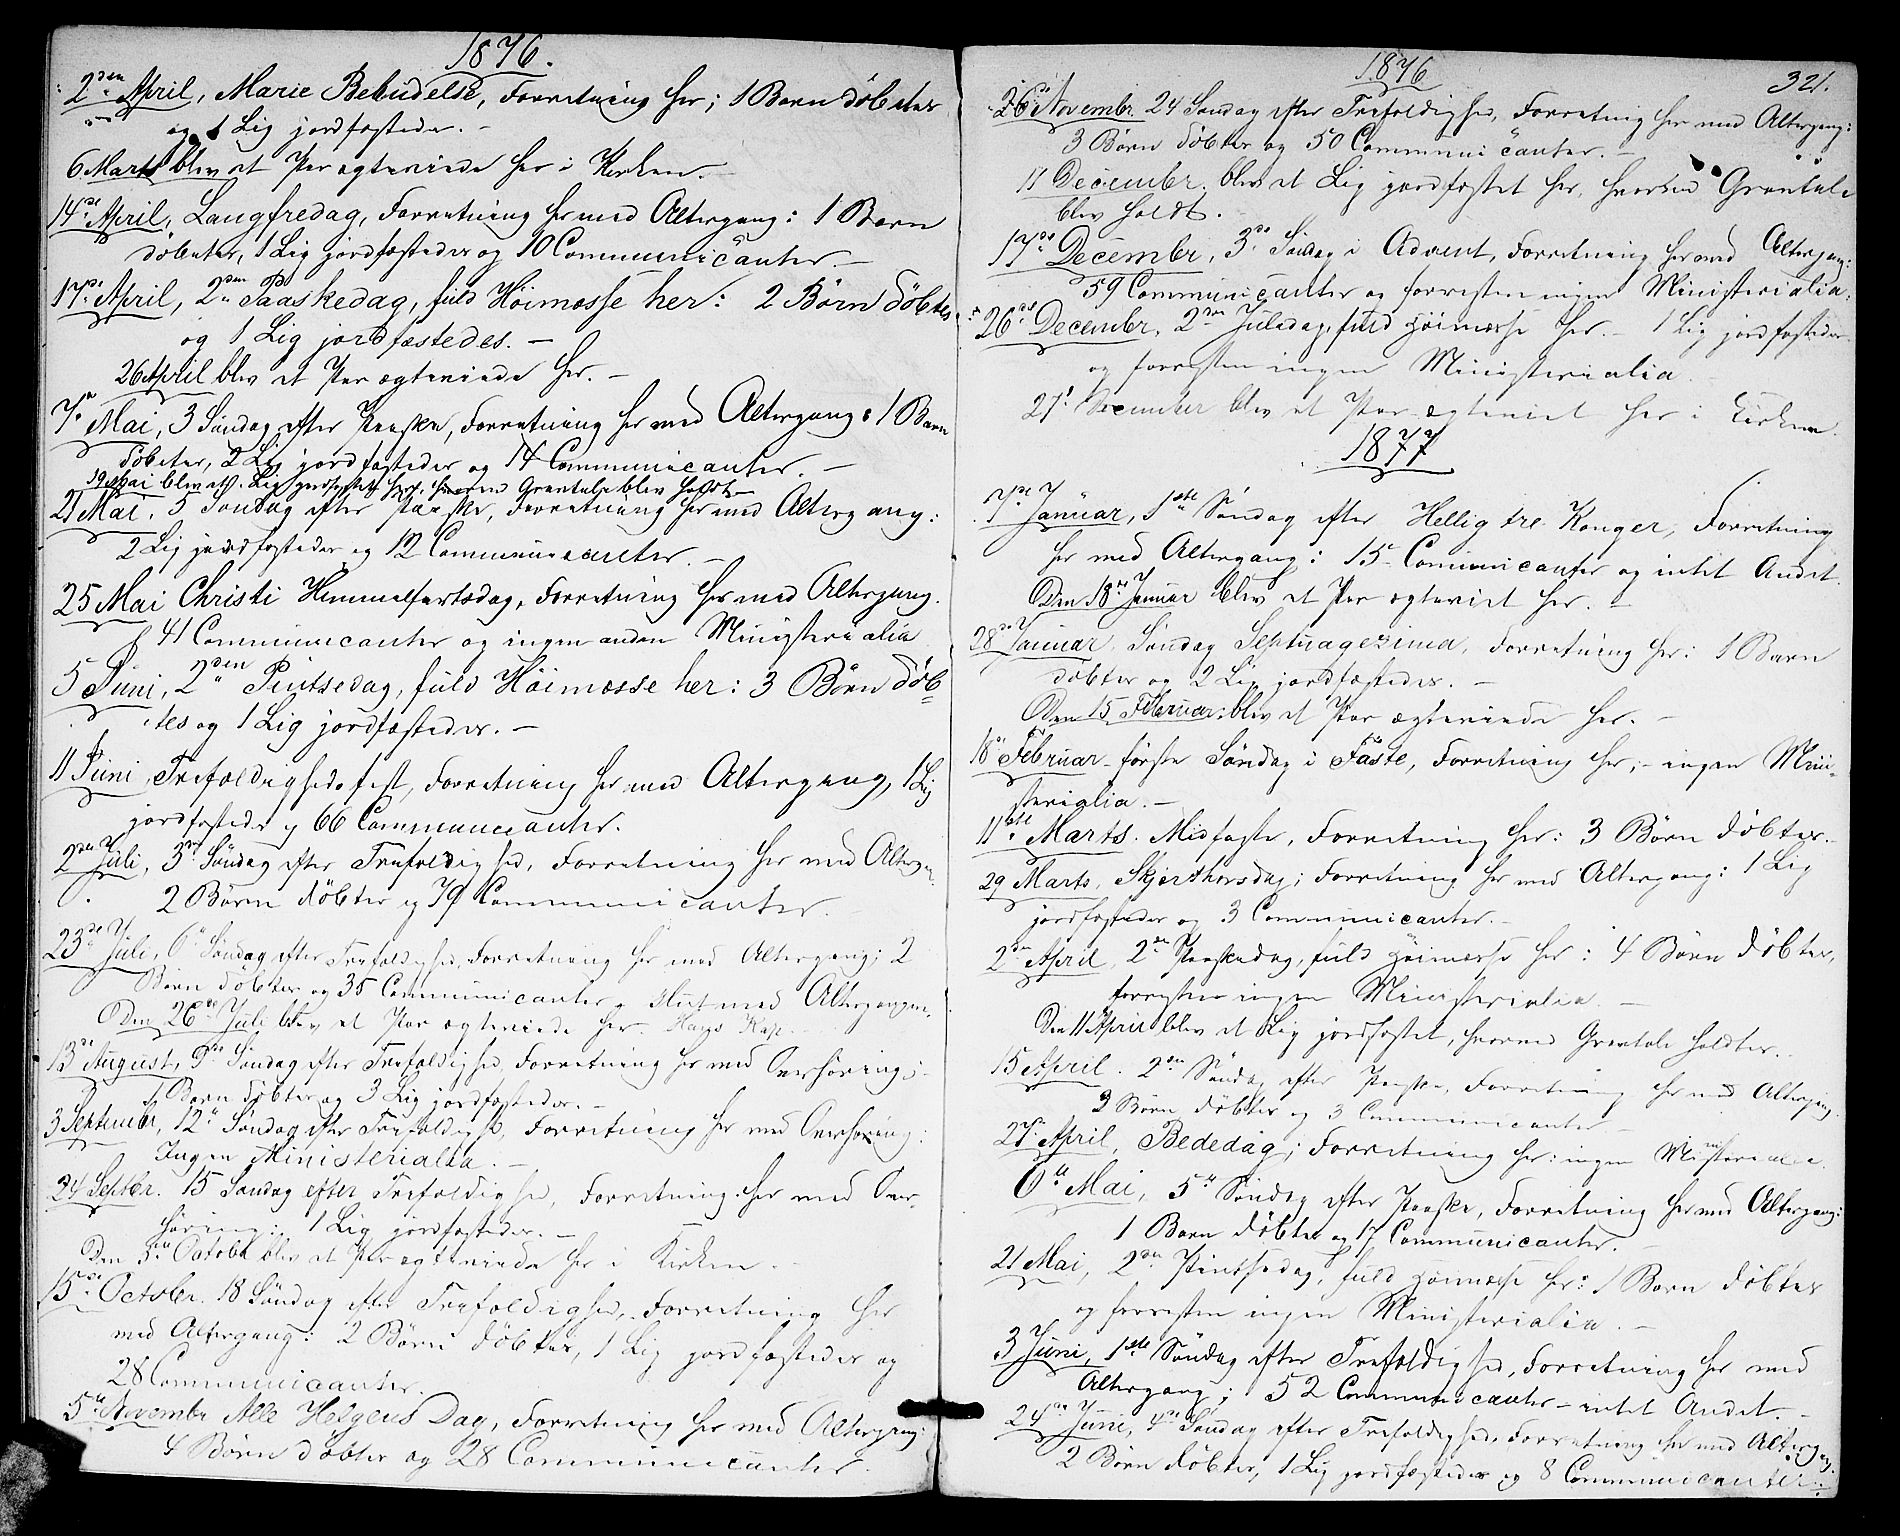 1876.
2den April, Marie Bebudelse, Forretning her; 1 Barn döbtes
og 1 Lig jordfæstedes. –
6 Marts blev et Par ægteviede her i Kirken. –
14de April, Langfredag, Forretning her med Altergang: 1 Barn
döbtes, 1 Lig jordfæstedes og 10 Communicanter. –
17de April, 2den Paaskedag, fuld Höimesse her: 2 Börn döbtes
og 1 Lig jordfæstedes. –
26 April blev et Par ægteviede her. –
7de Mai, 3 Söndag efter Paaske, Forretning her med Altergang: 1 Barn
döbtes, 2 Lig jordfæstedes og 14 Communicanter. –
19 Mai blev et Lig jordfæstet her, hvorved Gravtale blev holdt –
21 Mai, 5 Söndag efter Paaske, Forretning her med Altergang:
2 Lig jordfæstedes og 12 Communicanter. –
25 Mai Christi Himmelfartsdag, Forretning her med Altergang.
41 Communicanter og ingen anden Ministerialia
5 Juni, 2den Pintsedag, fuld Höimesse her: 3 Börn döb=
tes og 1 Lig jordfæstedes. –
11 Juni, Trefoldighedsfest, Forretning her med Altergang, 1 Lig
jordfæstedes og 66 Communicanter.
2den Juli, 3de Söndag efter Trefoldighed, Forretning her med Alterga:
2 Börn döbtes og 79 Communicanter.
23de Juli, 6te Söndag efter Trefoldighed, Forretning her med Altergang; 2
Börn döbtes og 35 Communicanter. Slut med Altergangen.
Den 26de Juli blev et Par ægteviede her.
13de August, 9de Söndag efter Trefoldighed, Forretning her med Overhöring: –
1 Barn döbtes og 3 Lig jordfæstedes. –
3 Septembr, 12te Söndag efter Trefoldighed, Forretning her med Overhöring:
Ingen Ministerialia. –
24 Septbr. 15 Söndag efter Trefoldighed, Forretning her med Over-
höring: 1 Lig jordfæstedes. –
Den 5te Octobr blev et Par ægteviede her i Kirken. –
15de Octobr. 18 Söndag efter Trefoldighed, Forretning her
med Altergang: 2 Börn döbtes, 1 Lig jordfæstedes og
28 Communicanter.
5te Novembr Alle Helgens Dag, Forretning her med Altergang:
4 Börn döbtes og 28 Communicanter.
1876
321.
26de Novembr. 24 Söndag efter Trefoldighed, Forretning her med Altergang:
3 Börn döbtes og 50 Communicanter. –
11 Decembr. blev et Lig jordfæstet her, hvorved Gravtale
blev holdt.
17de Decembr, 3de Söndag i Advent, Forretning her med Altergang:
59 Communicanter og forresten ingen Ministerialia.
26de Decembr, 2den Juledag, fuld Höimesse her. – 1 Lig jordfæstedes
og forresten ingen Ministerialia.
27de December blev et Par ægteviet her i Kirken.
1877
7de Januar, 1ste Söndag efter Hellig tre Konger, Forretning
her med Altergang: 15 Communicanter og intet Andet.
Den 18de Januar blev et Par ægteviet her. –
28de Januar, Söndag Septuagesima, Forretning her: 1 Barn
döbtes og 2 Lig jordfæstedes. –
Den 15 Februar blev et Par ægteviede her. –
18de Februar – förste Söndag i Faste, Forretning her, – ingen Mini-
sterialia. –
11te Marts. Midfaste, Forretning her: 3 Börn döbtes. –
29 Marts, Skjærthorsdag; Forretning her med Altergang: 1 Lig
jordfæstedes og 3 Communicanter. –
2den April, 2den Paaskedag, fuld Höimesse her: 4 Börn döbtes,
forresten ingen Ministerialia. –
Den 11 April blev et Lig jordfæstet, hvorved Gravtale holdtes. –
15 April. 2den Söndag efter Paaske, Forretning her med Altergang.
2 Börn döbtes og 3 Communicanter –
27de April, Bededag; Forretning her: ingen Ministerialia.
6te Mai, 5te Söndag efter Paaske, Forretning her med Altergang:
1 Barn döbtes og 17 Communicanter. –
21 Mai, 2den Pintsedag, fuld Höimesse her: 1 Barn döbtes
og forresten ingen Ministerialia. –
3 Juni, 1ste Söndag efter Trefoldighed, Forretning her med
Altergang; 52 Communicanter – intet Andet. –
24de Juni, 4de Söndag efter Trefoldighed, Forretning her med Altergang.
2 Börn döbtes, 1 Lig jordfæstedes og 8 Communicanter: